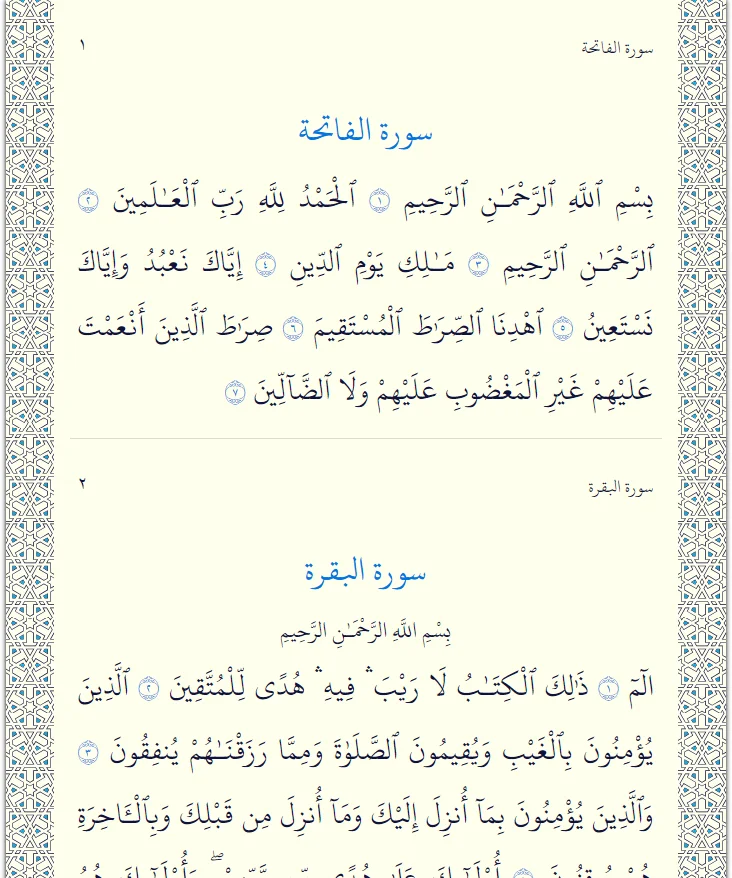 سورة الفاتحة ١
سورة الفاتحة
بِسْمِ ٱللَّهِ ٱلرَّحْمَـٰنِ ٱلرَّحِيمِ ١ ٱلْحَمْدُ لِلَّهِ رَبِّ ٱلْعَـٰلَمِينَ ٢
ٱلرَّحْمَـٰنِ ٱلرَّحِيمِ ٣ مَـٰلِكِ يَوْمِ ٱلدِّينِ ٤ إِيَّاكَ نَعْبُدُ وَإِيَّاكَ
نَسْتَعِينُ ٥ ٱهْدِنَا ٱلصِّرَٰطَ ٱلْمُسْتَقِيمَ ٦ صِرَٰطَ ٱلَّذِينَ أَنْعَمْتَ
عَلَيْهِمْ غَيْرِ ٱلْمَغْضُوبِ عَلَيْهِمْ وَلَا ٱلضَّآلِّينَ ٧
سورة البقرة ٢
سورة البقرة
بِسْمِ اللَّهِ الرَّحْمَـٰنِ الرَّحِيمِ
الٓمٓ ١ ذَٰلِكَ ٱلْكِتَـٰبُ لَا رَيْبَ ۛ فِيهِ ۛ هُدًى لِّلْمُتَّقِينَ ٢ ٱلَّذِينَ
يُؤْمِنُونَ بِٱلْغَيْبِ وَيُقِيمُونَ ٱلصَّلَوٰةَ وَمِمَّا رَزَقْنَـٰهُمْ يُنفِقُونَ ٣
وَٱلَّذِينَ يُؤْمِنُونَ بِمَآ أُنزِلَ إِلَيْكَ وَمَآ أُنزِلَ مِن قَبْلِكَ وَبِٱلْـَٔاخِرَةِ